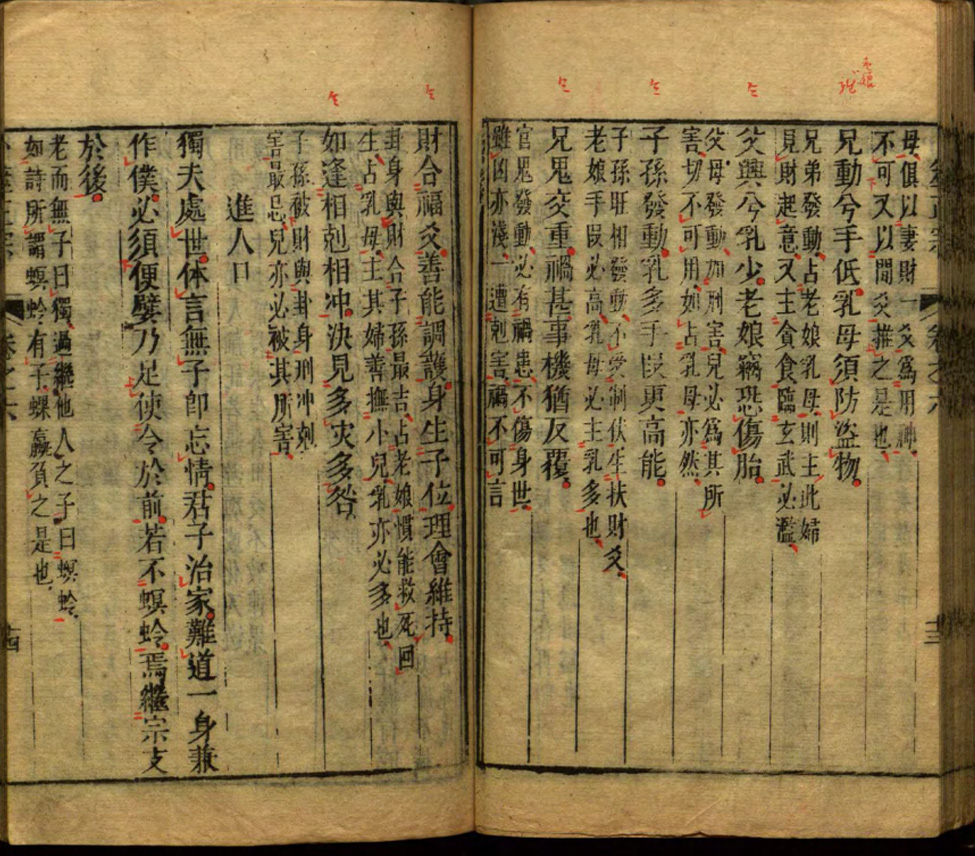 母俱以妻財一爻爲用神
不可又以間爻推之是也
兄動兮手低乳母須防盜物
兄弟發動占老娘乳母則主此婦
見財起意又主貪食臨玄武必濫
父興兮乳少老娘竊恐傷胎
父母發動加刑害兒必爲其所
害切不可用如占乳母亦然
子孫發動乳多手段更高能
子孫旺相發動不受制伏生扶財爻
老娘手段必高乳母必主乳多也
兄鬼交重禍甚事機猶反覆
官鬼發動必有禍患不傷身世
雖凶亦淺一遭剋害禍不可言
財合福爻善能調護身生子位理會維持
卦身與財合子孫最吉占老娘慣能救死回
生占乳母主其婦善撫小兒乳亦必多也
如逢相剋相冲決見多灾多咎
子孫被財與卦身刑冲剋
害最忌兒亦必被其所害
進人口
獨夫處世体言無子卽忘情君子治家難道一身兼
作僕必須便嬖乃足使令於前若不螟蛉焉繼宗支
於後
老而無子曰獨過繼他人之子曰螟蛉
如詩所謂螟蛉有子螺蠃負之是也
卷之六
十四